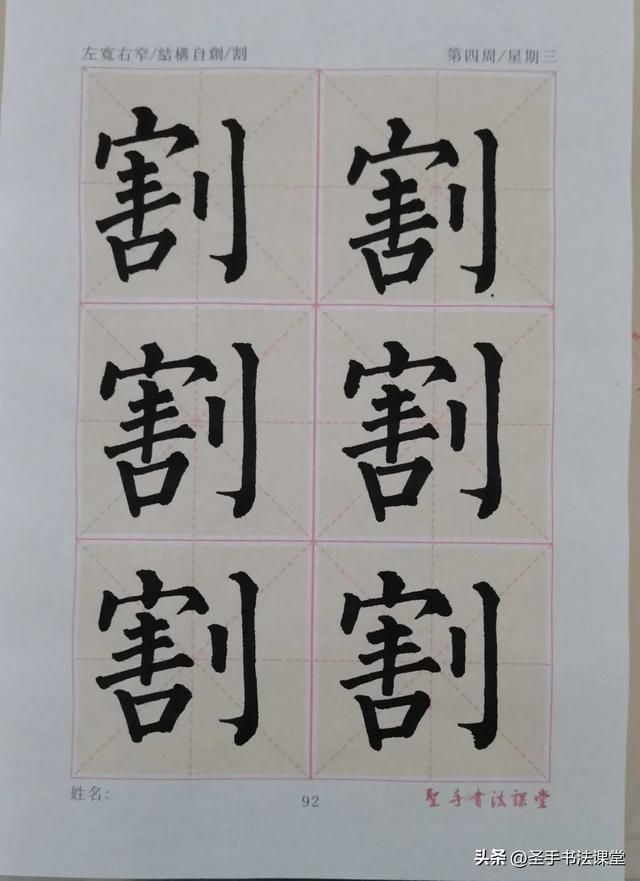 左寬右窄/結構自創/割 第四周/星期三
割 割
割 割
割 割
姓名: 92 聖手書法課堂
头条 @圣手书法课堂